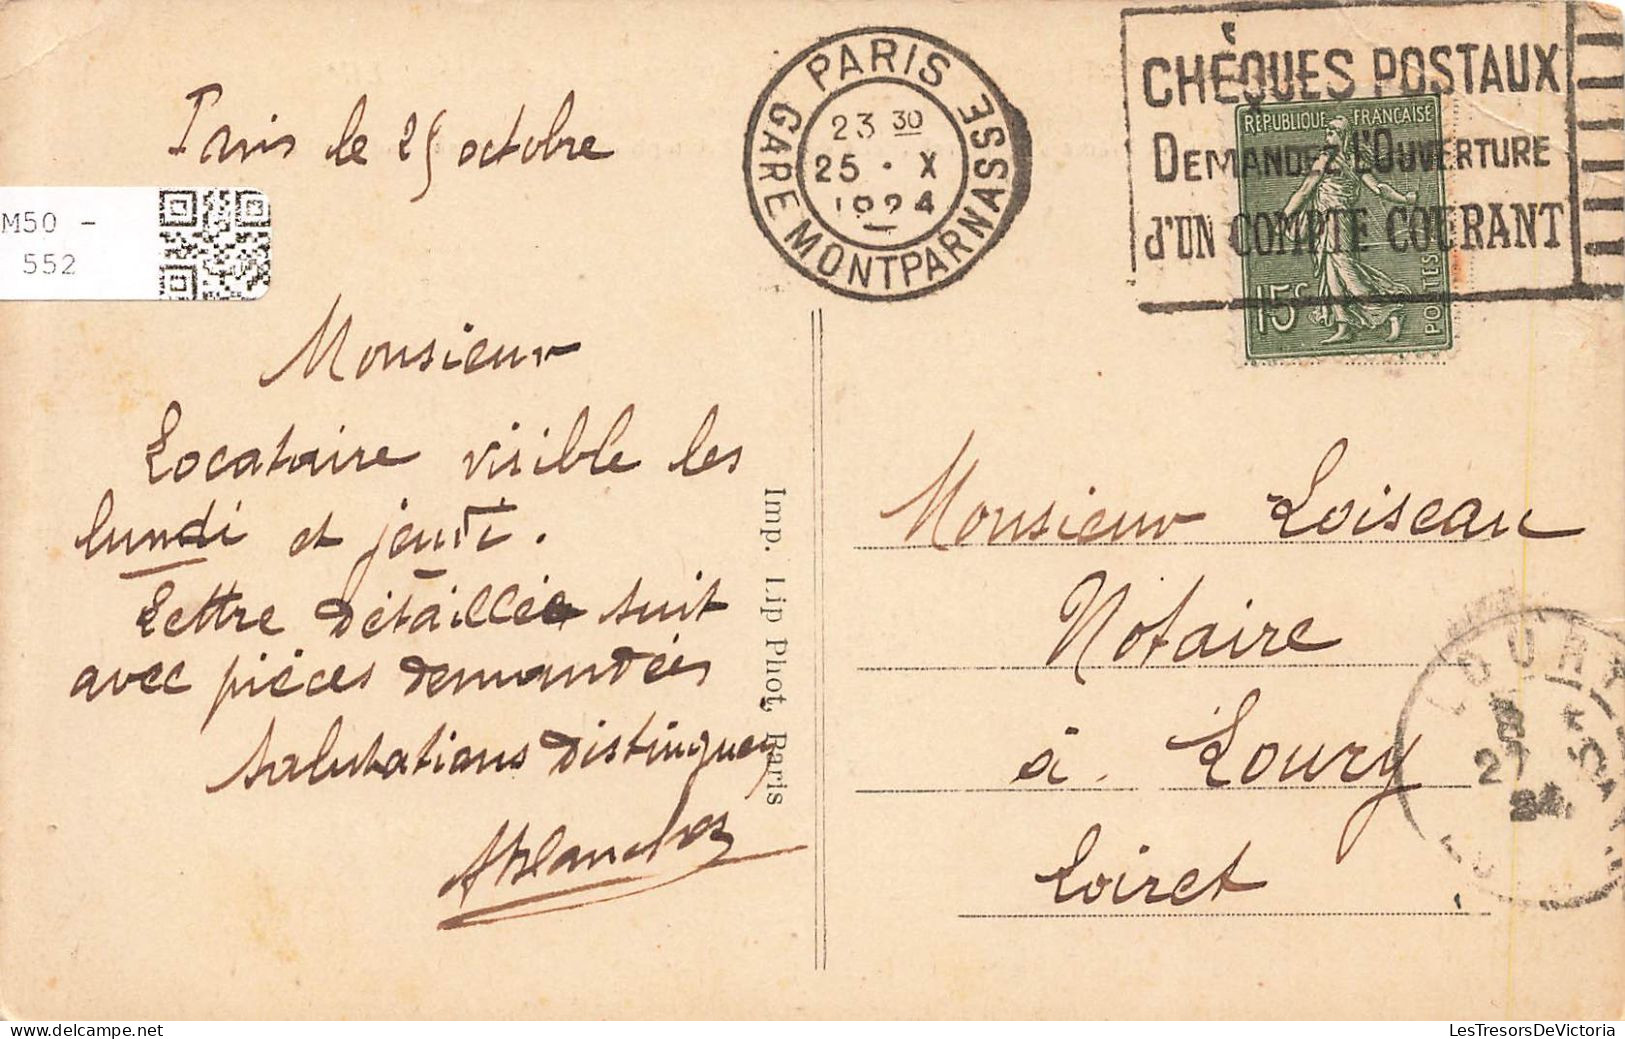 Paris le 25 octobre
M50 -
552
PARIS
GARE MONTPARNASSE
23 30
25 • X
1924
CHÈQUES POSTAUX
DEMANDEZ L'OUVERTURE
d'UN COMPTE COURANT
RÉPUBLIQUE FRANÇAISE
15c
POSTES
Monsieur
Locataire visible les
lundi et jeudi.
Lettre détaillée suit
avec pièces demandées
Salutations distinguées
Imp. Lip Phot, Paris
Monsieur Loiseau
Notaire
à Loury
Loiret
LOURY
27
24
LesTresorsDeVictoria
www.delcampe.net